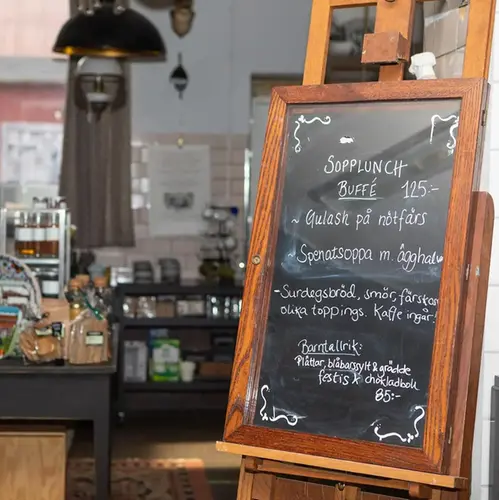 SOPPLUNCH
BUFFÉ 125:-
~ Gulash på nötfärs
~ Spenatsoppa m. ägghalv
- Surdegsbröd, smör, färskost
olika toppings. Kaffe ingår!
Barntallrik:
Plättar, blåbärssylt & grädde
festis & chokladboll
85:-